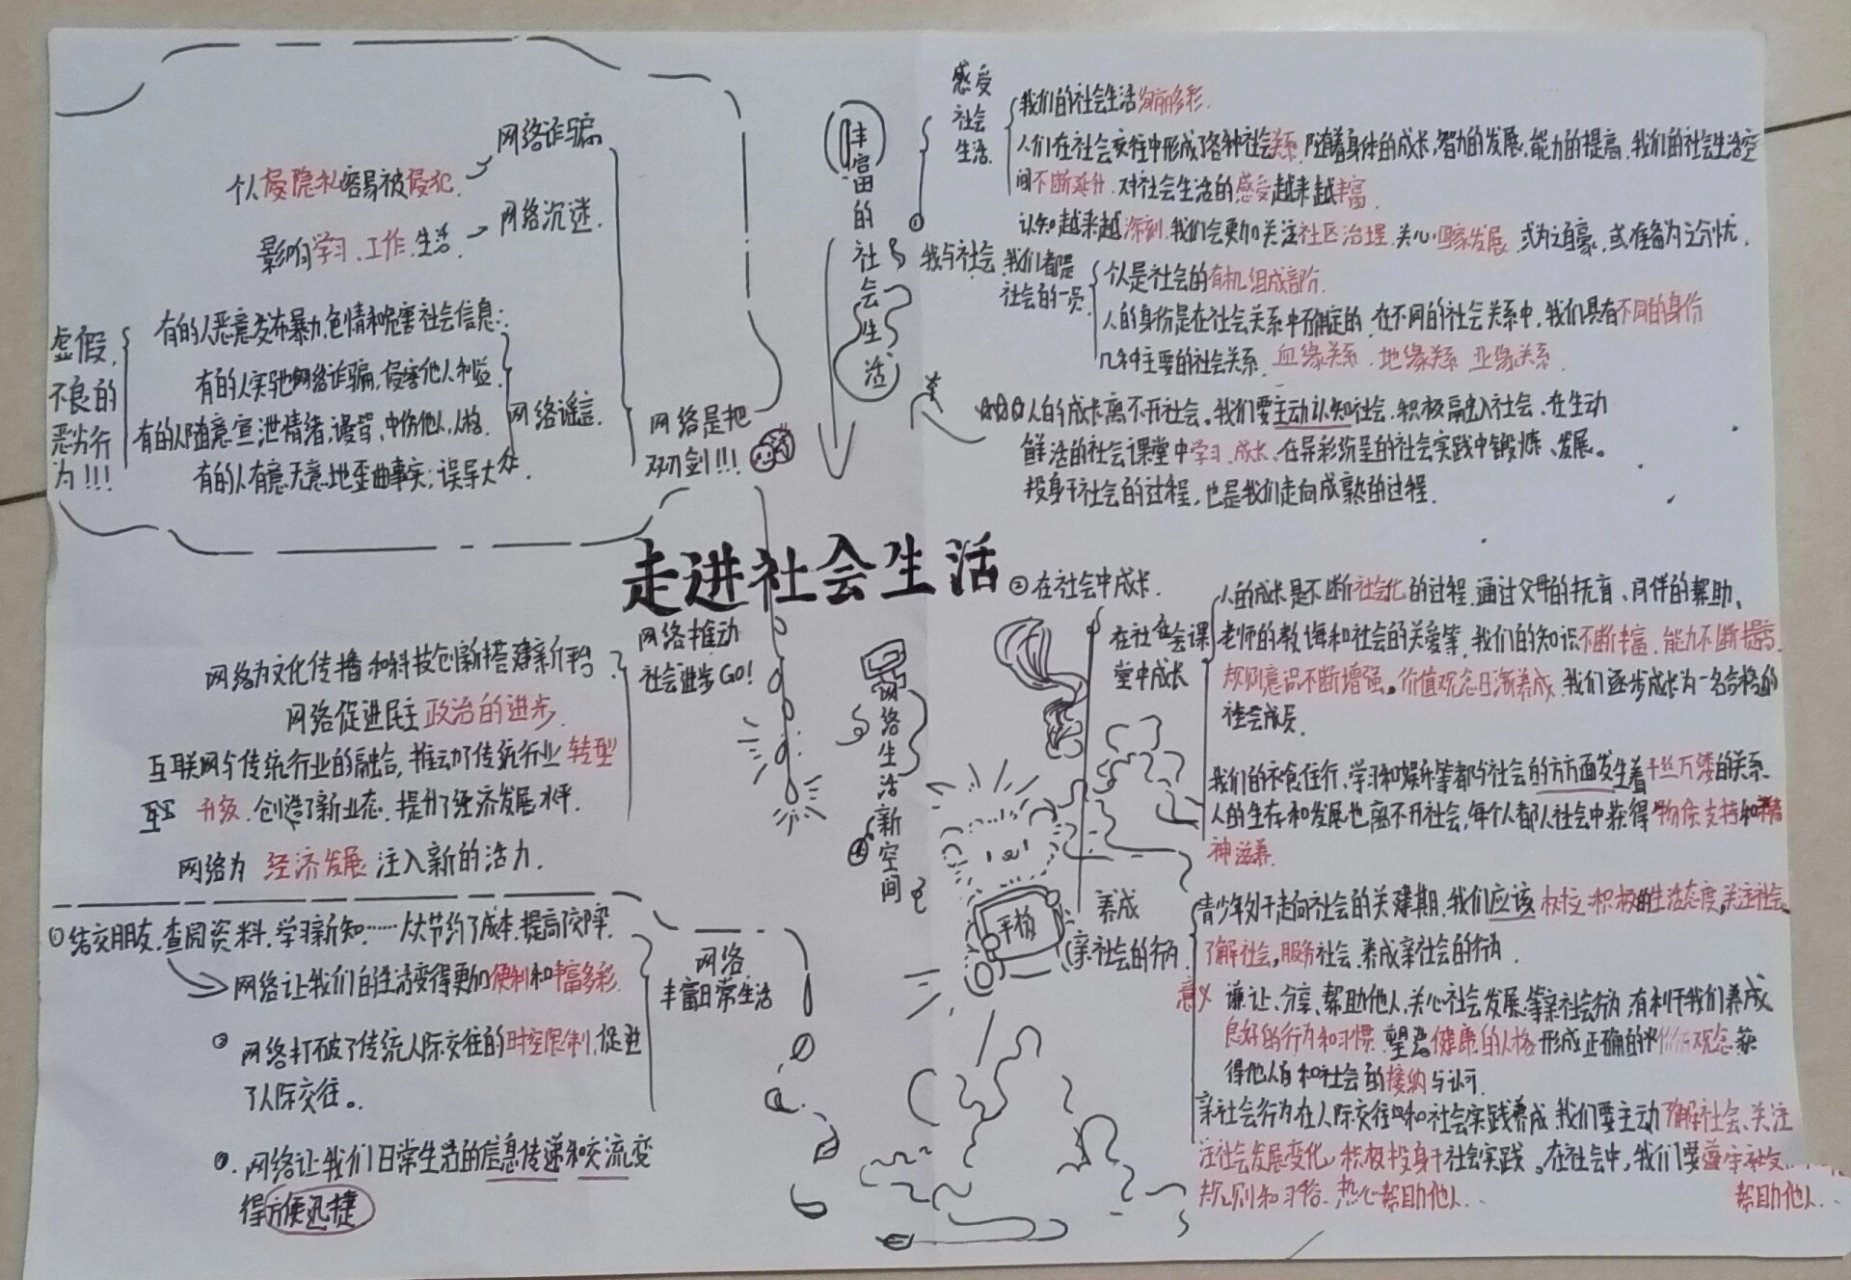 走进社会生活
丰富的社会生活
①
感受社会生活
我们的社会生活绚丽多彩.
人们在社会交往中形成了各种社会关系,随着身体的成长,智力的发展,能力的提高,我们的社会生活空
间不断延伸.对社会生活的感受越来越丰富.
认知越来越深刻.我们会更加关注社区治理.关心国家发展.或为之自豪,或准备为之分忧.
我与社会
我们都是
社会的一员
个人是社会的有机组成部分.
人的身份是在社会关系中确定的.在不同的社会关系中,我们具有不同的身份
几种主要的社会关系.血缘关系.地缘关系.业缘关系.
人的成长离不开社会。我们要主动认知社会.积极融入社会、在生动
鲜活的社会课堂中学习、成长、在异彩纷呈的社会实践中锻炼、发展。
投身于社会的过程,也是我们走向成熟的过程.
②在社会中成长.
在社会课
堂中成长
人的成长是不断社会化的过程.通过父母的抚育、同伴的帮助、
老师的教诲和社会的关爱等,我们的知识不断丰富,能力不断提高,
规则意识不断增强。价值观念日渐养成.我们逐步成长为一名合格的
社会成员.
我们的衣食住行、学习和娱乐等都与社会的方方面面发生着千丝万缕的关系.
人的生存和发展也离不开社会,每个人都从社会中获得物质支持和精
神滋养.
养成
亲社会的行为
青少年处于走向社会的关建期.我们应该树立积极的生活态度,关注社会
了解社会,服务社会.养成亲社会的行为.
意义 谦让、分享、帮助他人,关心社会发展等亲社会行为,有利于我们养成
良好的行为和习惯.塑造健康的人格.形成正确的价值观念获
得他人自和社会的接纳与认可.
亲社会行为在人际交往中和社会实践养成.我们要主动了解社会、关注
注社会发展变化,积极投身于社会实践。在社会中,我们要遵守社交
规则和习俗.热心帮助他人..
帮助他人..
网络生活新空间
平板
网络
丰富日常生活
①结交朋友,查阅资料,学习新知……大大节约了成本,提高了效率.
网络让我们的生活变得更加便利和丰富多彩.
网络打破了传统人际交往的时空限制,促进
了人际交往。
网络让我们日常生活的信息传递和交流变
得方便迅捷
网络推动
社会进步GO!
网络为文化传播和科技创新搭建新平台
网络促进民主政治的进步.
互联网与传统行业的融合,推动了传统行业转型
升级.创造了新业态.提升了经济发展水平.
网络为经济发展注入新的活力.
网络是把
双刃剑!!!
网络诈骗
个人侵隐私容易被侵犯.
网络沉迷.
影响学习、工作、生活
网络谣言.
有的人恶意发布暴力、色情和危害社会信息;
有的人实施网络诈骗,侵害他人利益.
有的人随意宣泄情绪,谩骂、中伤他人人格.
有的人有意无意地歪曲事实;误导大众.
虚假、
不良的
恶劣行
为!!!